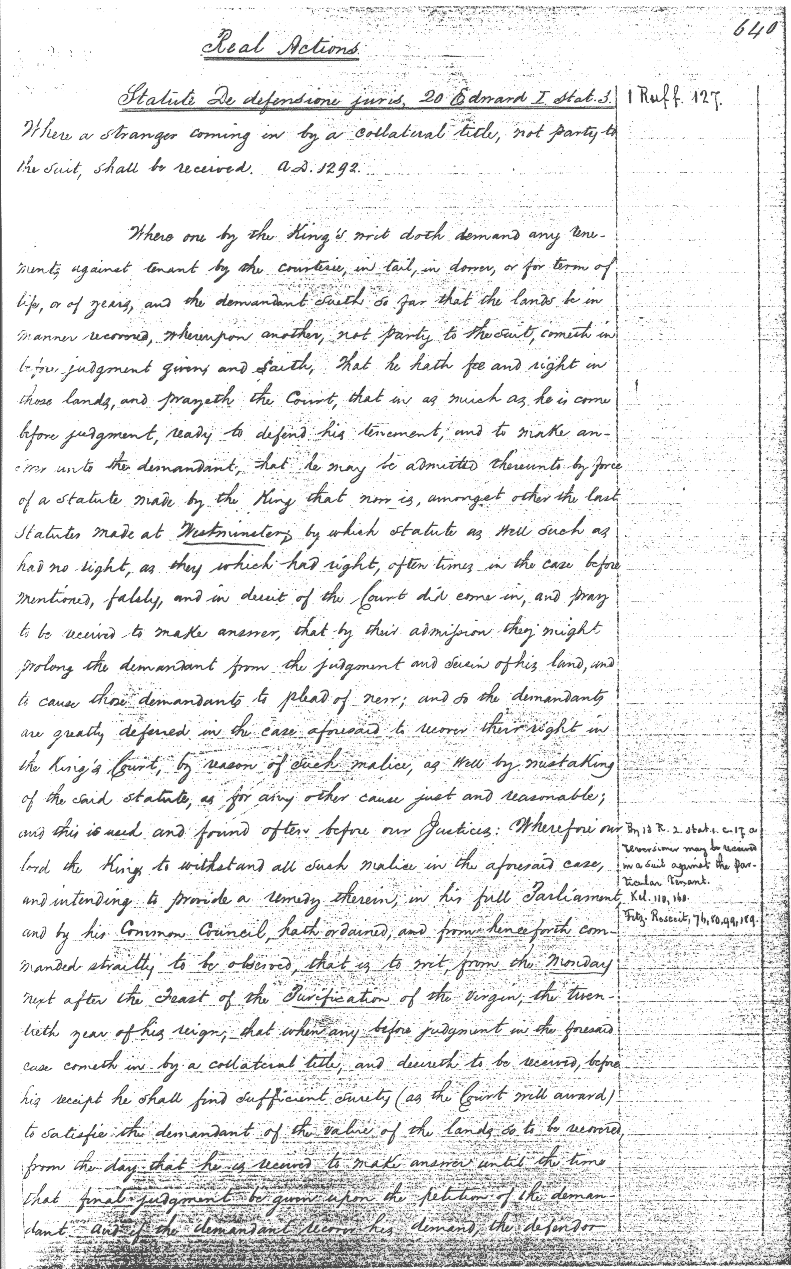 640
Real Actions.
Statute De defensione juris, 20 Edward I stat. 3.
1 Ruff. 127.
Where a stranger coming in by a collateral title, not party to
the suit, shall be received. A.D. 1292.
Where one by the King's writ doth demand any tene-
ments against tenant by the courtesie, in tail, in dower, or for term of
life, or of years, and the demandant sueth so far that the lands be in
manner recovered, whereupon another, not party to the suit, cometh in
before judgment given, and saith, That he hath fee and right in
those lands, and prayeth the Court, that in as much as he is come
before judgment, ready to defend his tenement, and to make an-
swer unto the demandant, that he may be admitted thereunto by force
of a Statute made by the King that now is, amongst other the last
Statutes made at Westminster, by which statute as well such as
had no right, as they which had right, often times in the case before
mentioned, falsly, and in deceit of the Court did come in, and pray
to be received to make answer, that by their admission they might
prolong the demandant from the judgment and seisin of his land, and
to cause those demandants to plead of new; and so the demandants
are greatly deferred in the case aforesaid to recover their right in
the King's Court, by reason of such malice, as well by mistaking
of the said statute, as for any other cause just and reasonable;
and this is used and found often before our Justices: Wherefore our
lord the King, to withstand all such malice in the aforesaid case,
and intending to provide a remedy therein, in his full Parliament,
and by his Common Council, hath ordained, and from henceforth com-
manded straitly to be observed, that is to wit, from the Monday
next after the Feast of the Purification of the Virgin, the twen-
tieth year of his reign, that when any before judgment in the foresaid
case cometh in by a collateral title, and desireth to be received, before
his receipt he shall find sufficient surety (as the Court will award)
to satisfie the demandant of the value of the lands so to be recovered,
from the day that he is received to make answer until the time
that final judgment be given upon the petition of the deman-
dant and if the demandant recover his demand, the defendor
By 13 R. 2 stat. 1. c. 17 a
reversioner may be received
in a suit against the par-
ticular tenant.
Kel. 110, 160.
Fitz. Resceit, 76, 80, 99, 189.